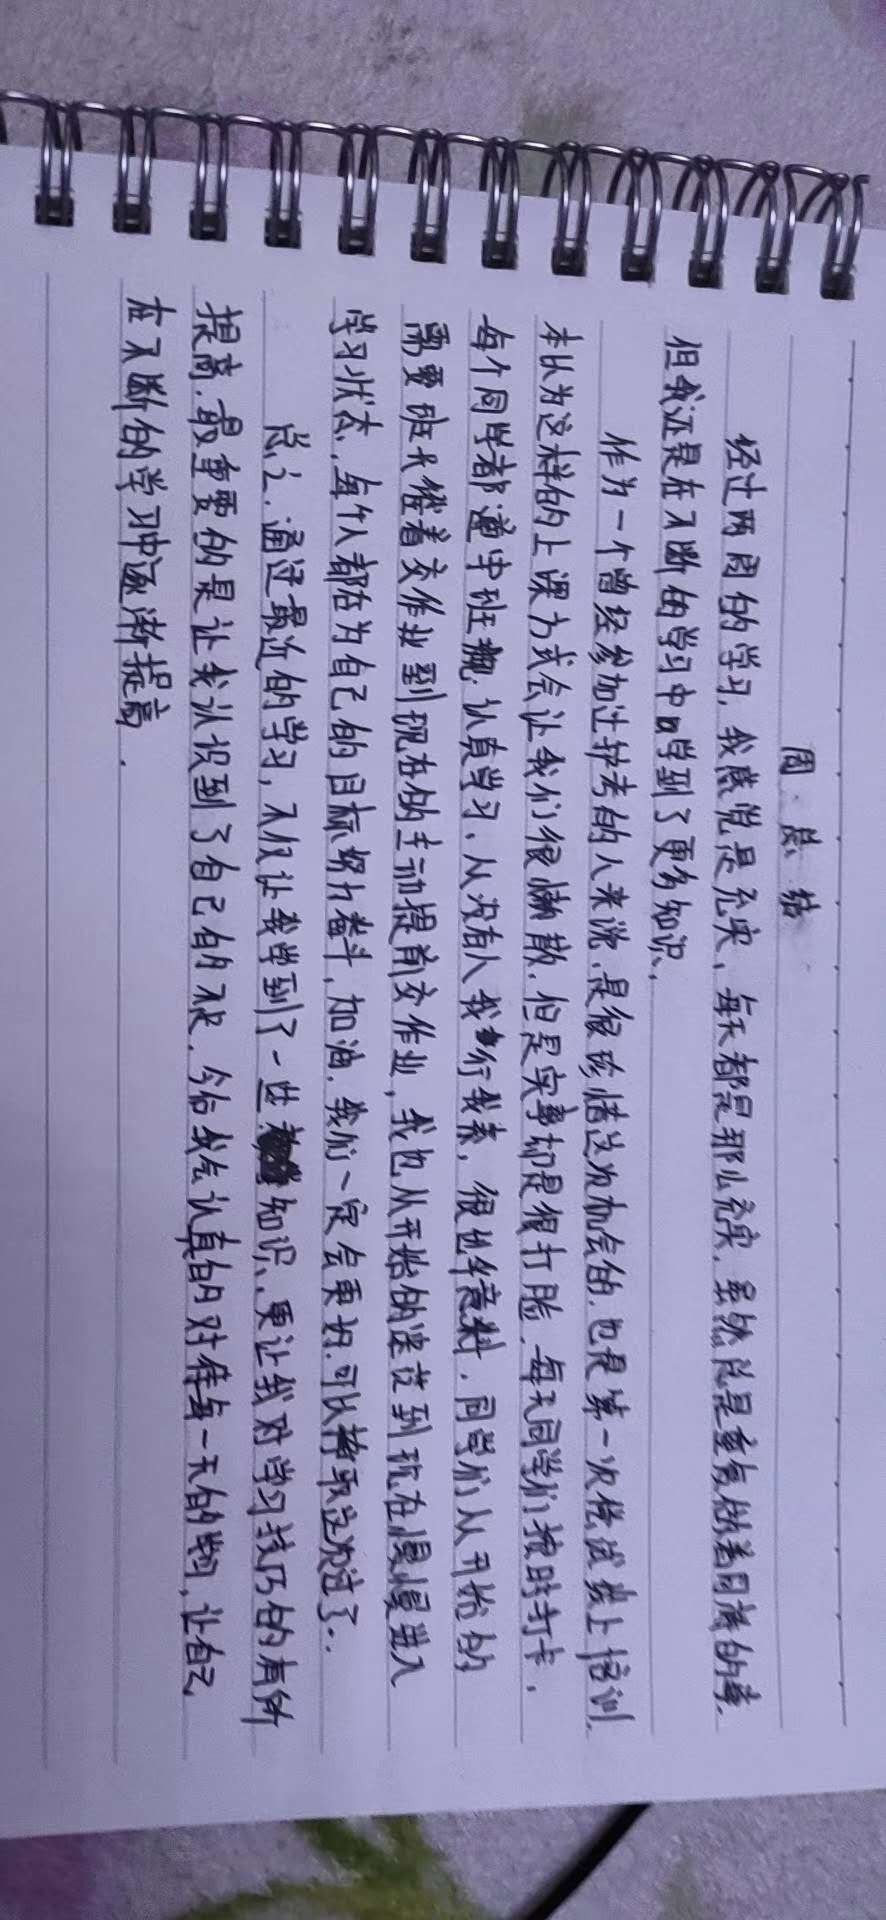 周总结
经过两周的学习，我感觉是充实，每天都是那么充实，虽然总是重复做着同样的事，
但我还是在不断的学习中学到了更多知识，
作为一个曾经参加过护考的人来说，是很珍惜这次机会的，也是第一次尝试线上培训，
本以为这样的上课方式会让我们很懒散，但是实事却是很打脸，每天同学们按时打卡，
每个同学都遵守班规，认真学习、从没有人我行我素，很出乎意料，同学们从开始的
需要班长催着交作业到现在的主动提前交作业，我也从开始的迷茫到现在慢慢进入
学习状态，每个人都在为自己的目标努力奋斗，加油，我们一定会更好，可以考取这次过了..
总之，通过最近的学习，不仅让我学到了一些知识、更让我对学习技巧的有所
提高，最重要的是让我认识到了自己的不足，今后我会认真的对待每一天的学习，让自己
在不断的学习中逐渐提高．